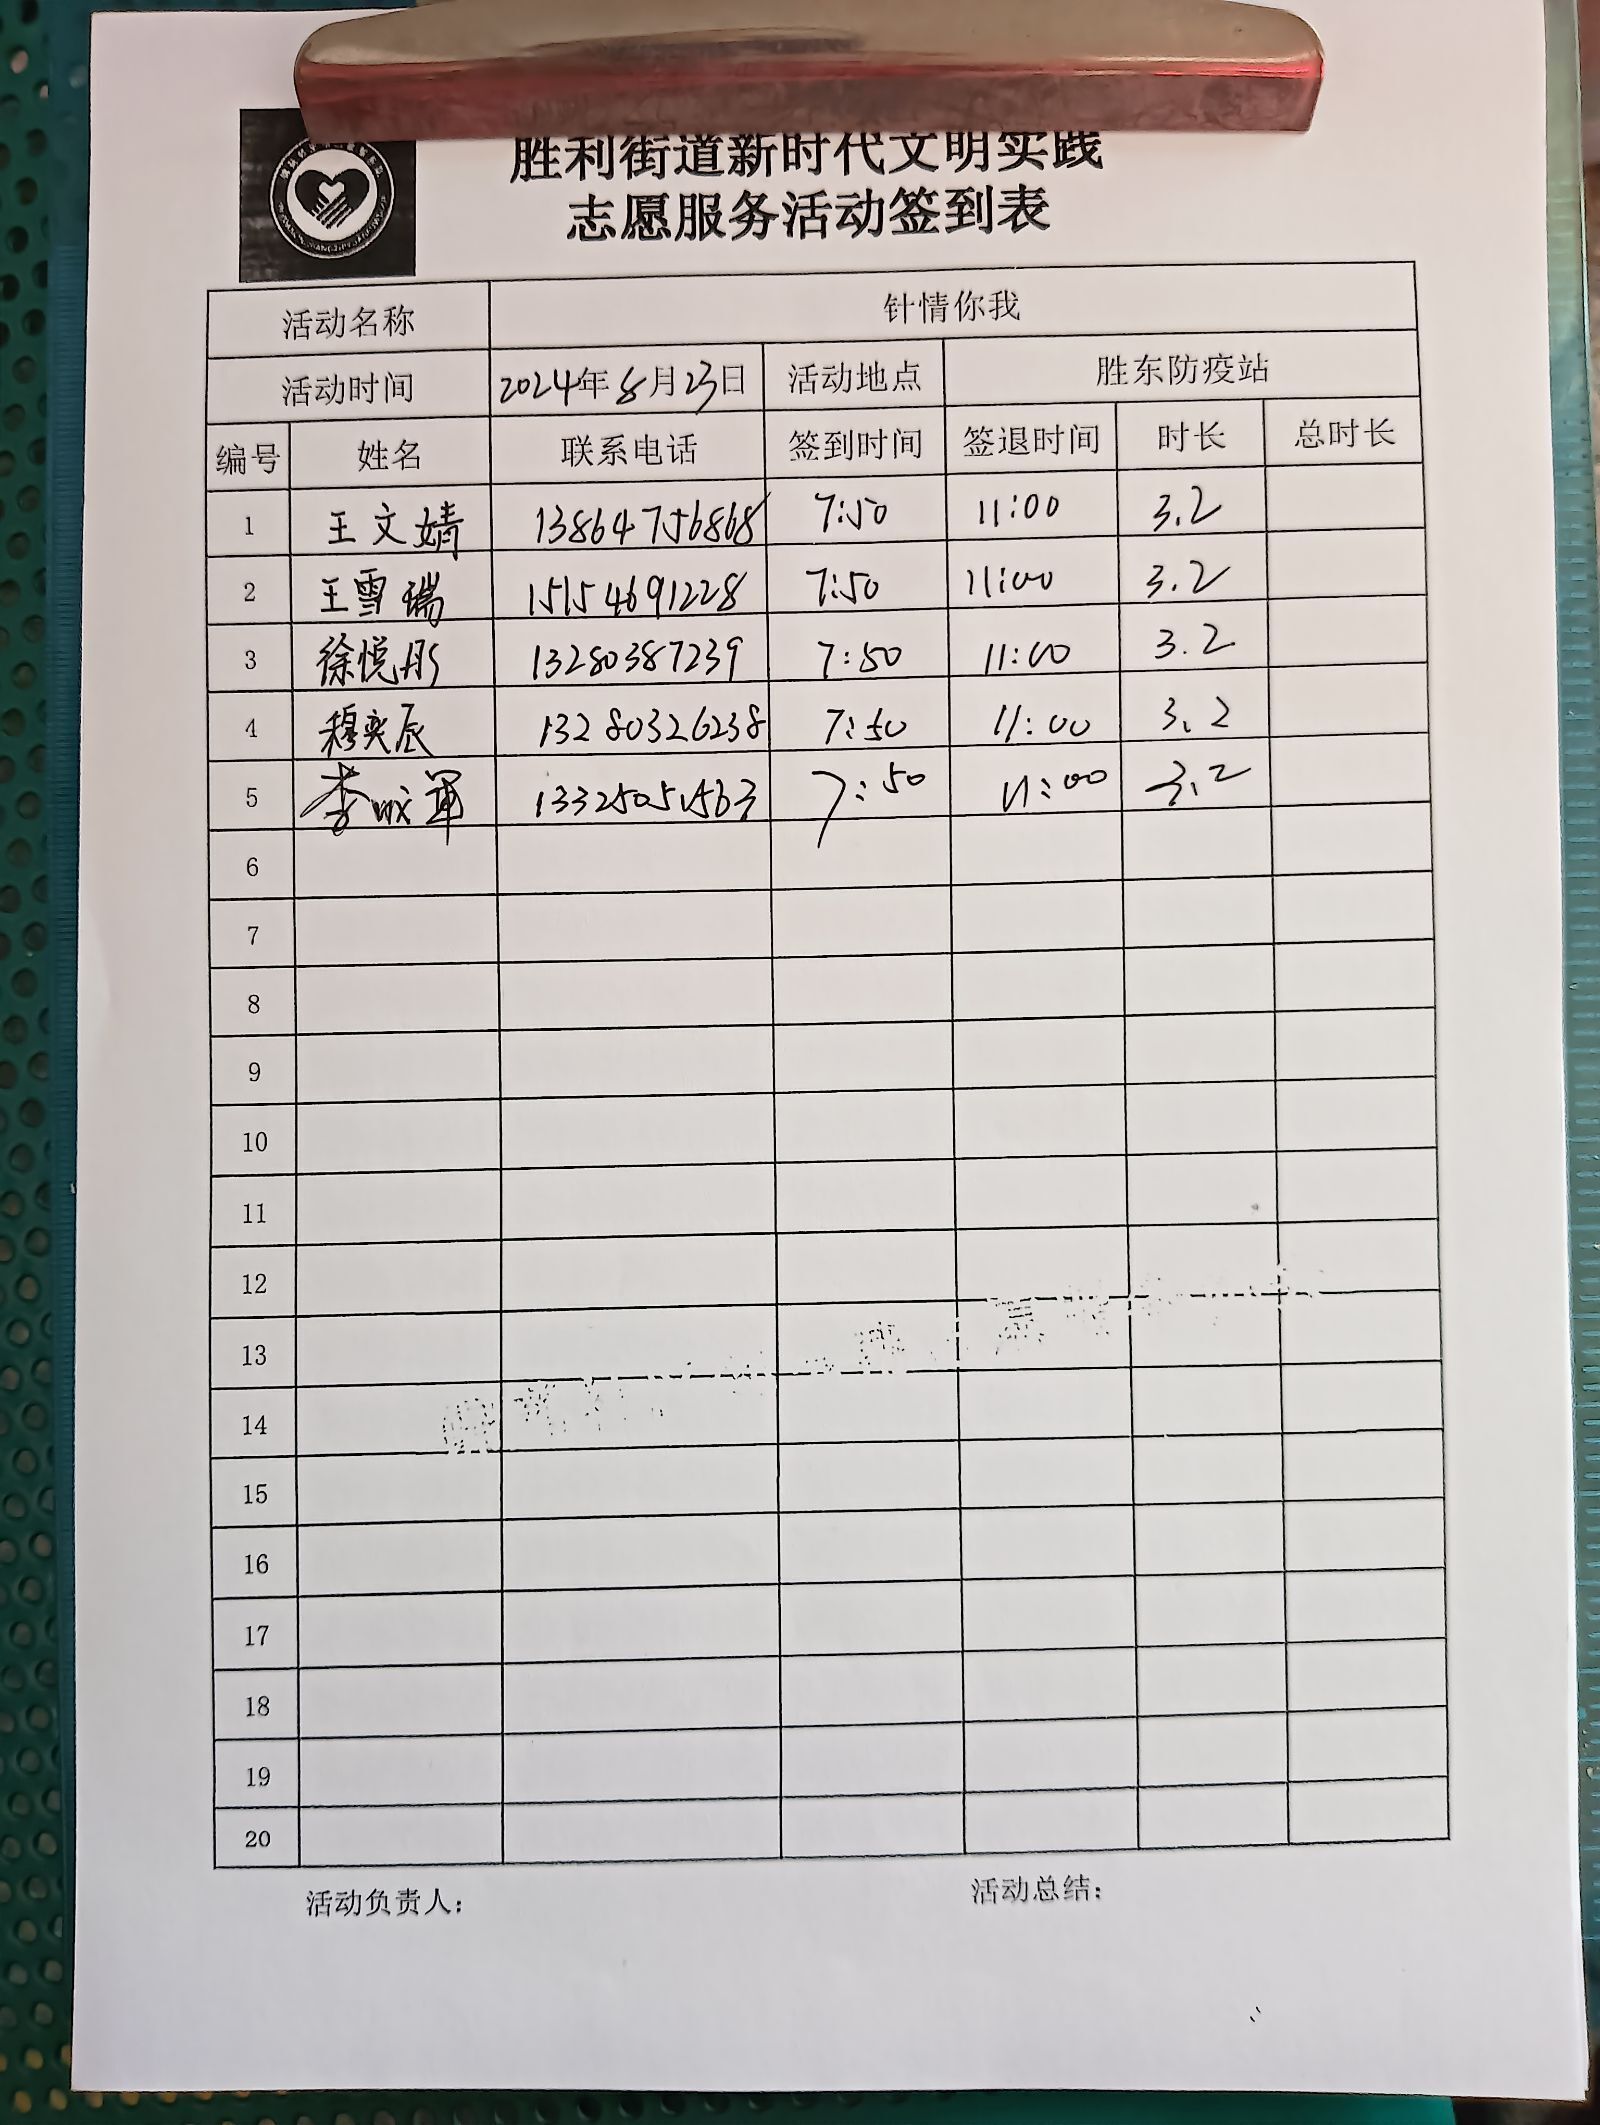 胜利街道新时代文明实践
志愿服务活动签到表
活动名称 针情你我
活动时间 2024年8月23日 活动地点 胜东防疫站
编号 姓名 联系电话 签到时间 签退时间 时长 总时长
1 王文婧 13864756868 7:50 11:00 3.2
2 王雪瑞 15154691228 7:50 11:00 3.2
3 徐悦彤 13280387239 7:50 11:00 3.2
4 穆奕辰 13280326238 7:50 11:00 3.2
5 李 军 13325051563 7:50 11:00 3.2
6
7
8
9
10
11
12
13
14
15
16
17
18
19
20
活动负责人： 活动总结：